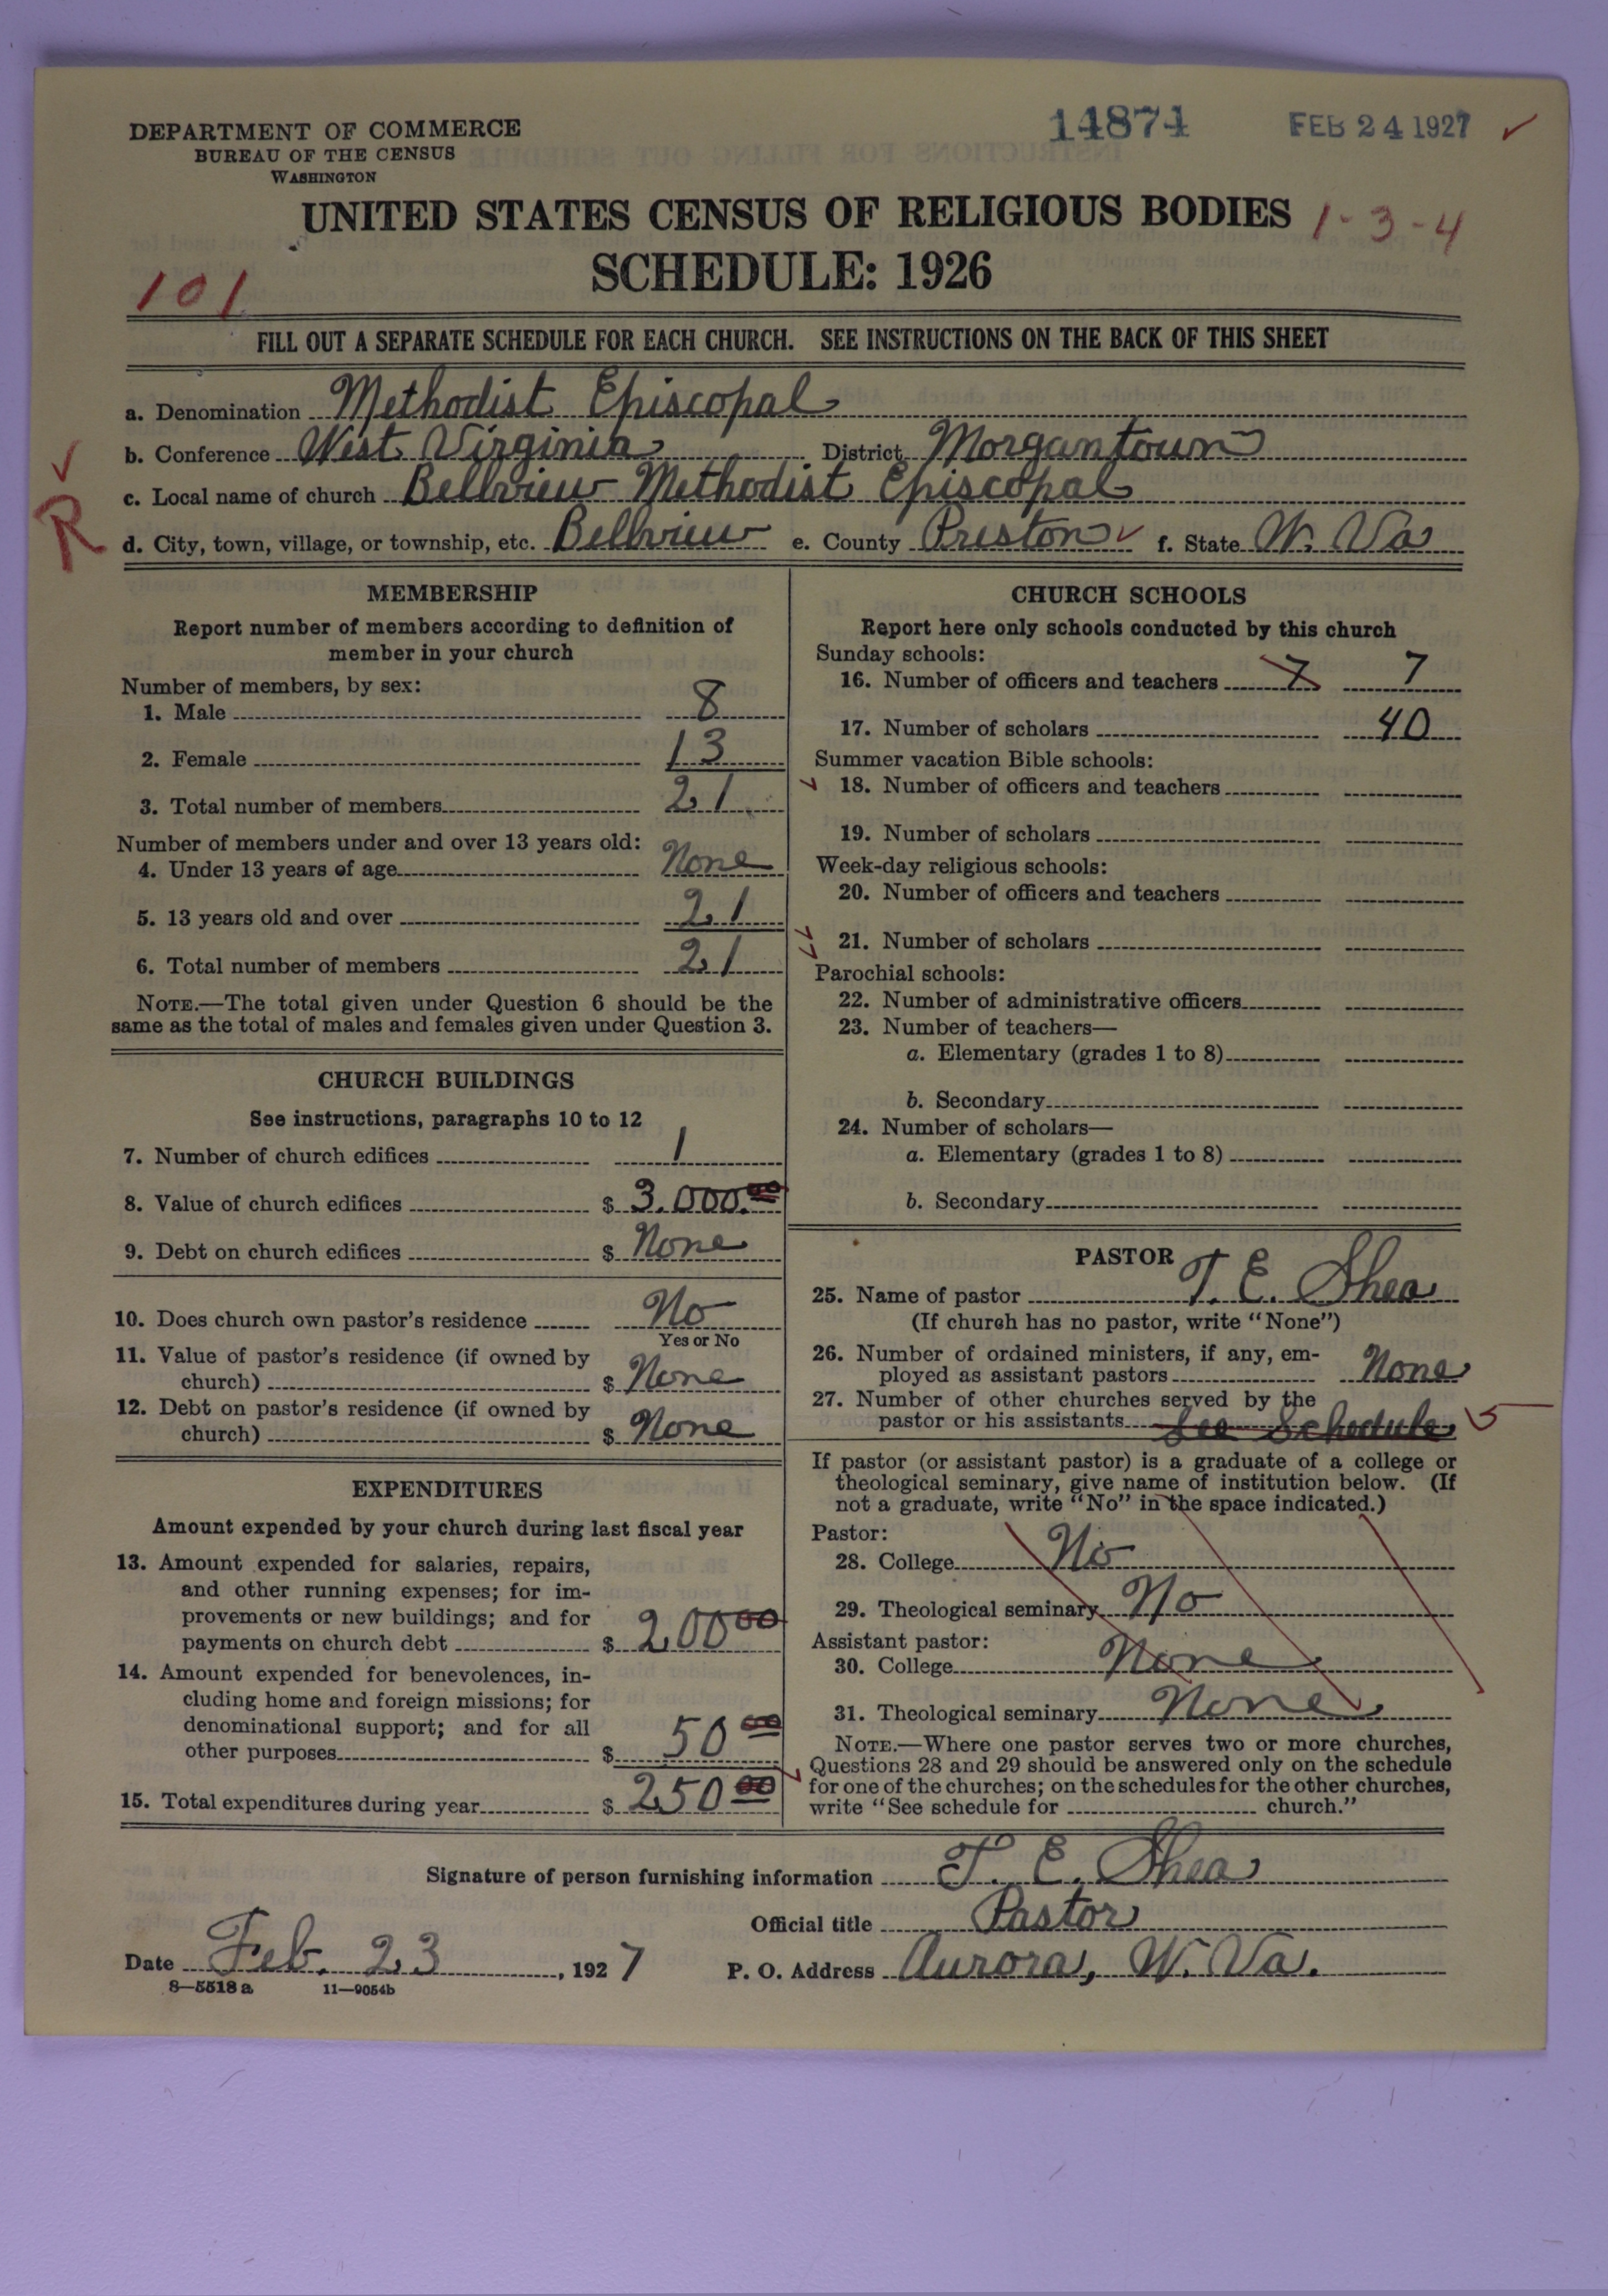 DEPARTMENT OF COMMERCE
BUREAU OF THE CENSUS
WASHINGTON
14874
FEB 24 1927
UNITED STATES CENSUS OF RELIGIOUS BODIES
1-3-4
SCHEDULE: 1926
101
FILL OUT A SEPARATE SCHEDULE FOR EACH CHURCH. SEE INSTRUCTIONS ON THE BACK OF THIS SHEET
a. Denomination Methodist Episcopal
b. Conference West Virginia District Morgantown
c. Local name of church Bellview Methodist Episcopal
R
d. City, town, village, or township, etc. Bellview e. County Preston f. State W. Va
MEMBERSHIP
Report number of members according to definition of
member in your church
Number of members, by sex:
1. Male 8
2. Female 13
3. Total number of members 21
Number of members under and over 13 years old:
4. Under 13 years of age None
5. 13 years old and over 21
6. Total number of members 21
NOTE.—The total given under Question 6 should be the
same as the total of males and females given under Question 3.
CHURCH BUILDINGS
See instructions, paragraphs 10 to 12
7. Number of church edifices 1
8. Value of church edifices $ 3.000.00
9. Debt on church edifices $ None
10. Does church own pastor's residence No
Yes or No
11. Value of pastor's residence (if owned by
church) $ None
12. Debt on pastor's residence (if owned by
church) $ None
EXPENDITURES
Amount expended by your church during last fiscal year
13. Amount expended for salaries, repairs,
and other running expenses; for im-
provements or new buildings; and for
payments on church debt $ 200 00
14. Amount expended for benevolences, in-
cluding home and foreign missions; for
denominational support; and for all
other purposes $ 50 00
15. Total expenditures during year $ 250 00
CHURCH SCHOOLS
Report here only schools conducted by this church
Sunday schools:
16. Number of officers and teachers 7 7
17. Number of scholars 40
Summer vacation Bible schools:
18. Number of officers and teachers
19. Number of scholars
Week-day religious schools:
20. Number of officers and teachers
21. Number of scholars
Parochial schools:
22. Number of administrative officers
23. Number of teachers—
a. Elementary (grades 1 to 8)
b. Secondary
24. Number of scholars—
a. Elementary (grades 1 to 8)
b. Secondary
PASTOR
25. Name of pastor T. E. Shea
(If church has no pastor, write "None")
26. Number of ordained ministers, if any, em-
ployed as assistant pastors None
27. Number of other churches served by the
pastor or his assistants See Schedule 5
If pastor (or assistant pastor) is a graduate of a college or
theological seminary, give name of institution below. (If
not a graduate, write "No" in the space indicated.)
Pastor:
28. College No
29. Theological seminary No
Assistant pastor:
30. College None
31. Theological seminary None
NOTE.—Where one pastor serves two or more churches,
Questions 28 and 29 should be answered only on the schedule
for one of the churches; on the schedules for the other churches,
write "See schedule for church."
Signature of person furnishing information T. E. Shea
Official title Pastor
Date Feb. 23, 1927
P. O. Address Aurora, W. Va.
8—5518 a 11—9054b